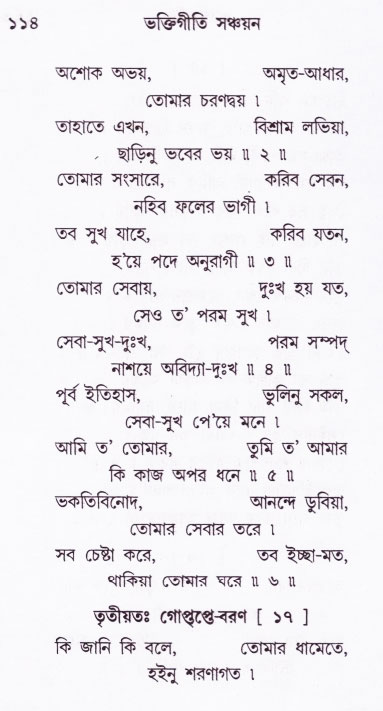 ১১৪ ভক্তিগীতি সঞ্চয়ন
অশোক অভয়, অমৃত-আধার,
তোমার চরণদ্বয় ।
তাহাতে এখন, বিশ্রাম লভিয়া,
ছাড়িনু ভবের ভয় ॥ ২ ॥
তোমার সংসারে, করিব সেবন,
নহিব ফলের ভাগী ।
তব সুখ যাহে, করিব যতন,
হ'য়ে পদে অনুরাগী ॥ ৩ ॥
তোমার সেবায়, দুঃখ হয় যত,
সেও ত' পরম সুখ ।
সেবা-সুখ-দুঃখ, পরম সম্পদ্
নাশয়ে অবিদ্যা-দুঃখ ॥ ৪ ॥
পূর্ব ইতিহাস, ভুলিনু সকল,
সেবা-সুখ পে'য়ে মনে ।
আমি ত' তোমার, তুমি ত' আমার
কি কাজ অপর ধনে ॥ ৫ ॥
ভকতিবিনোদ, আনন্দে ডুবিয়া,
তোমার সেবার তরে ।
সব চেষ্টা করে, তব ইচ্ছা-মত,
থাকিয়া তোমার ঘরে ॥ ৬ ॥
তৃতীয়তঃ গোপ্তৃপ্তে-বরণ [ ১৭ ]
কি জানি কি বলে, তোমার ধামেতে,
হইনু শরণাগত ।